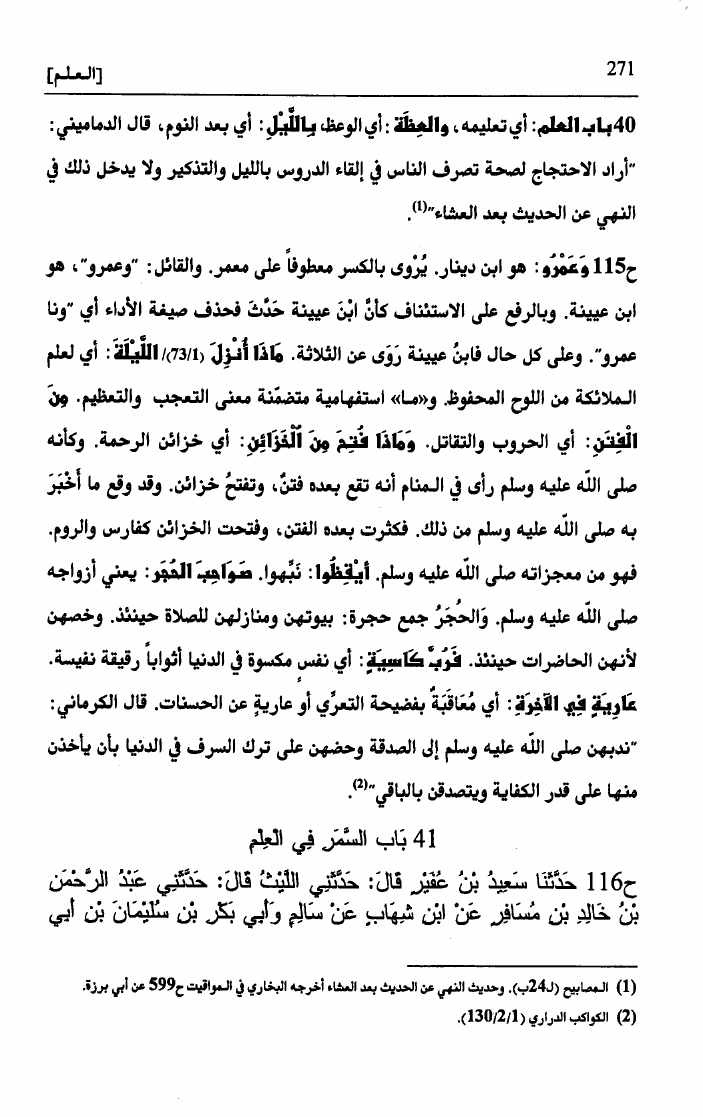 271
[الـعـلـم]
40باب العلم: أي تعليمه، والعِظَة: أي الوعظ، بِاللَّيْلِ: أي بعد النوم، قال الدماميني:
"أراد الاحتجاج لصحة تصرف الناس في إلقاء الدروس بالليل والتذكير ولا يدخل ذلك في
النهي عن الحديث بعد العشاء"(1).
ح115 وَعَمْرٍو: هو ابن دينار. يُرْوى بالكسر معطوفاً على معمر. والقائل: "وعمرو"، هو
ابن عيينة. وبالرفع على الاستئناف كأنَّ ابْنَ عيينة حَدَّثَ فحذف صيغة الأداء أي "ونا
عمرو". وعلى كل حال فابنُ عيينة رَوَى عن الثلاثة. مَاذَا أُنْزِلَ (73/1)/ اللَّيْلَةَ: أي لعلم
الملائكة من اللوح المحفوظ. و«مـا» استفهامية متضمّنة معنى التعجب والتعظيم. مِنَ
الْفِتَنِ: أي الحروب والتقاتل. وَمَاذَا فُتِحَ مِنَ الْخَزَائِنِ: أي خزائن الرحمة. وكأنه
صلى الله عليه وسلم رأى في الـمنام أنه تقع بعده فتنٌ، وتفتحُ خزائن. وقد وقع ما أَخْبَرَ
به صلى الله عليه وسلم من ذلك. فكثرت بعده الفتن، وفتحت الخزائن كفارس والروم.
فهو من معجزاته صلى الله عليه وسلم. أيقظوا: نَبِّهوا. صَوَاحِبَ الحُجَرِ: يعني أزواجه
صلى الله عليه وسلم. وَالحُجَرُ جمع حجرة: بيوتهن ومنازلهن للصلاة حينئذ. وخصهن
لأنهن الحاضرات حينئذ. فَرُبَّ كَاسِيَةٍ: أي نفس مكسوة في الدنيا أثواباً رقيقة نفيسة.
عَارِيَةٍ فِي الآخِرَةِ: أي مُعَاقَبَةٌ بفضيحة التعرِّي أو عاريةٍ عن الحسنات. قال الكرماني:
"ندبهن صلى الله عليه وسلم إلى الصدقة وحضهن على ترك السرف في الدنيا بأن يأخذن
منها على قدر الكفاية ويتصدقن بالباقي"(2).
41 بَاب السَّمَرِ فِي الْعِلْمِ
ح116 حَدَّثَنَا سَعِيدُ بْنُ عُفَيْرٍ قَالَ: حَدَّثَنِي اللَّيْثُ قَالَ: حَدَّثَنِي عَبْدُ الرَّحْمَنِ
بْنُ خَالِدِ بْنِ مُسَافِرٍ عَنْ ابْنِ شِهَابٍ عَنْ سَالِمٍ وَأَبِي بَكْرِ بْنِ سُلَيْمَانَ بْنِ أَبِي
(1) الـمصابيح (ل24ب). وحديث النهي عن الحديث بعد العشاء أخرجه البخاري في الـمواقيت ح599 عن أبي برزة.
(2) الكواكب الدراري (130/2/1).